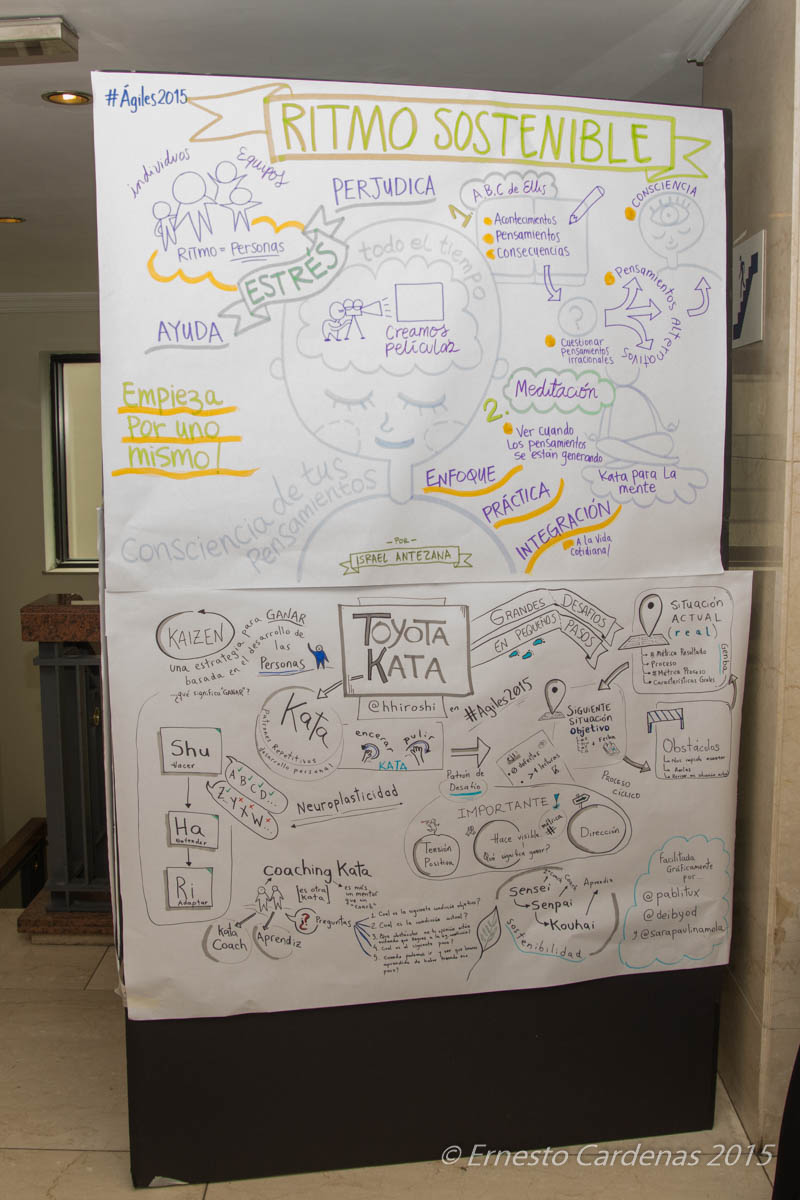 #Ágiles2015
RITMO SOSTENIBLE
individuos
Equipos
RITMO = Personas
PERJUDICA
ESTRÉS
AYUDA
todo el tiempo
Creamos
películas
Empieza
Por uno
mismo!
Consciencia de tus
pensamientos
1. A,B,C de Ellis
Acontecimentos
Pensamientos
Consecuencias
?
Cuestionar
pensamientos
irracionales
Pensamientos Alternativos
CONSCIENCIA
2. Meditación
Ver cuando
los pensamientos
se están generando
Kata para la
mente
ENFOQUE
PRÁCTICA
INTEGRACIÓN
A la vida
cotidiana!
- POR -
ISRAEL ANTEZANA
KAIZEN
una estrategia para GANAR
basada en el desarrollo de
las
Personas
¿qué significa "GANAR"?
TOYOTA
KATA
@hhiroshi en #Ágiles2015
GRANDES DESAFIOS
EN PEQUEÑOS PASOS
SITUACIÓN
ACTUAL
(real)
# Métrica Resultado
Proceso
# Métrica Proceso
Características Grales
Genba
Kata
Patrones Repetitivos
desarrollo personal
encerar
pulir
KATA
SIGUIENTE
SITUACIÓN
objetivo
+ Fecha
Obstáculos
PROCESO
CÍCLICO
Patrón de
Desafío
Shu
Hacer
Ha
Entender
Ri
Adaptar
A B C D...
Z Y X W...
Neuroplasticidad
IMPORTANTE!
Tensión
Positiva
Hace visible
¿Qué significa ganar?
métrica
#
Dirección
coaching Kata
[es otra
kata]
es más
un mentor
que un
"coach"
Kata
Coach
Aprendiz
? Preguntas
1. Cual es la siguiente condición objetivo?
2. Cual es la condición actual?
4. Cual es el siguiente paso?
Sensei
Senpai
Kouhai
Coach
Aprendiz
Sostenibilidad
Facilitada
Gráficamente
por...
@pablitux
@deibyod
y @sarapaulinamola
© Ernesto Cardenas 2015